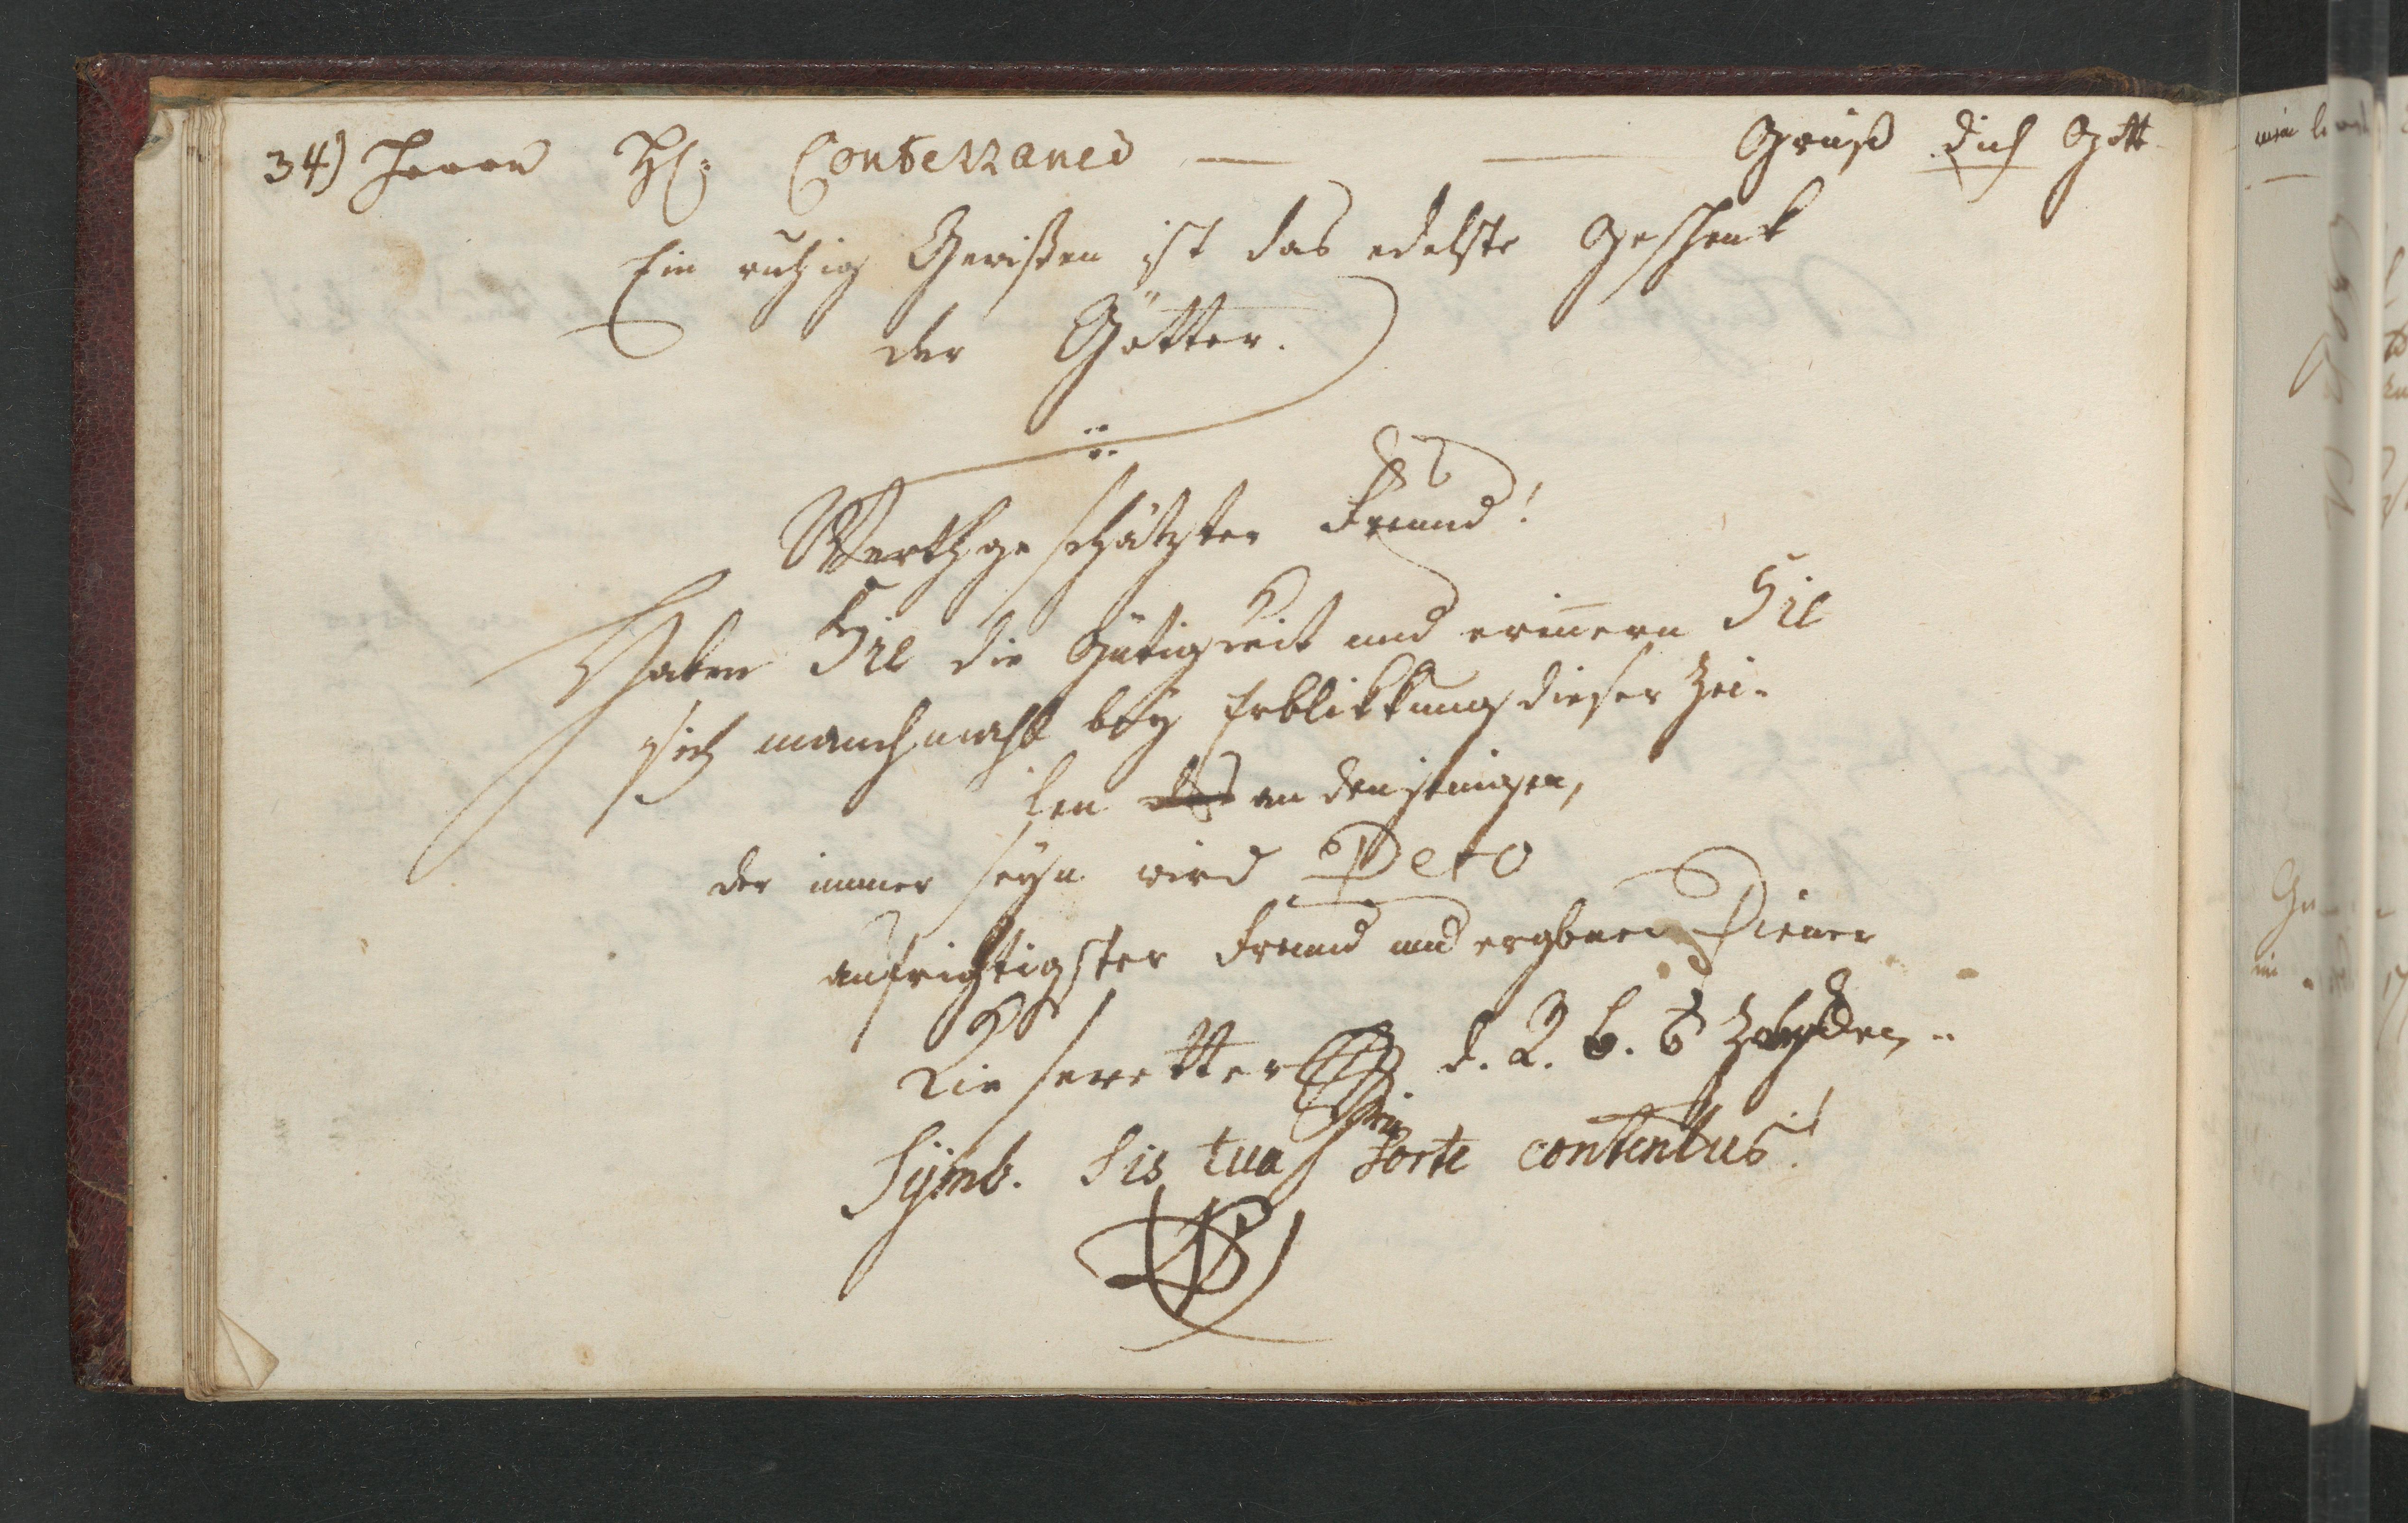 34) Herrn H: Contezzanes — — Grüß dich Gott
Ein ruhig Gewißen ist das edelste Geschenk
der Götter.
Werthgeschätzter Freund!
Haben Sie die Gütigkeit und erinnern Sie
sich manchmahl bey Erblikkung dieser Zei-
len an denjenigen,
der immer seyn wird Dero
aufrichtigster Freund und ergbner Diener
d. 2. b. 6
Symb. Sis tua sorte contentus!